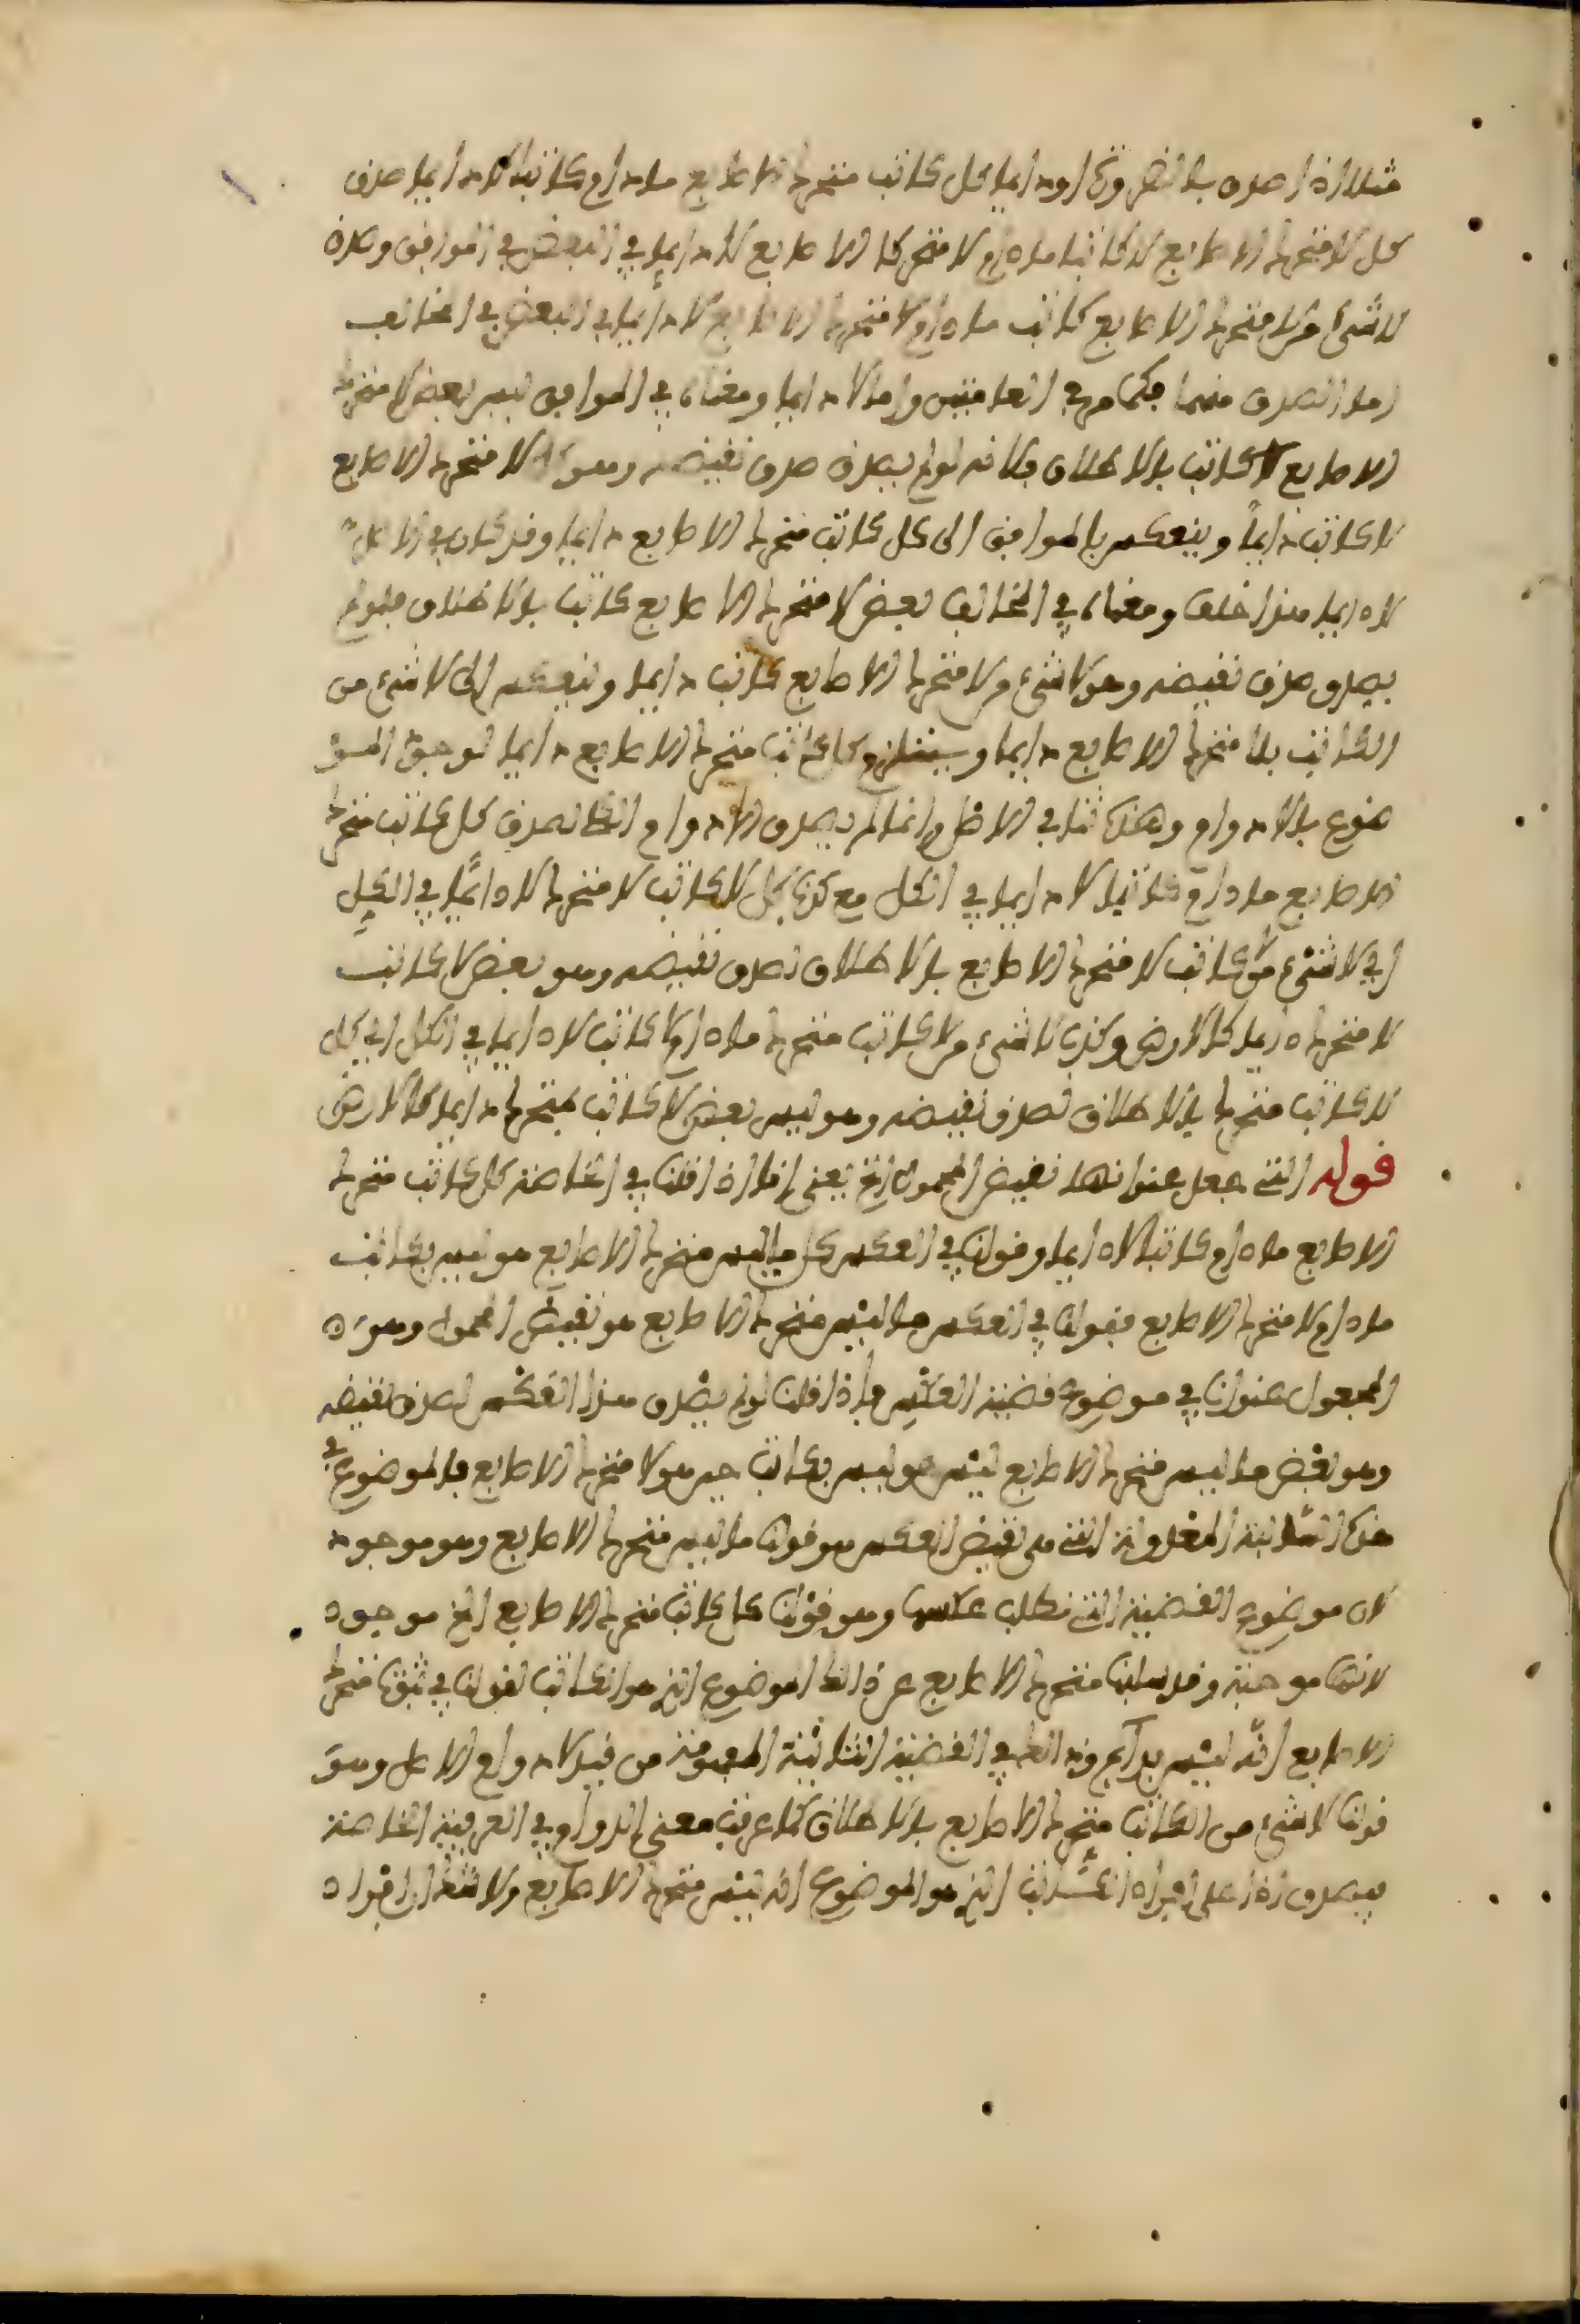 مثلا اذا صدق بالضرورة او دايما كل كاتب متحرك الاصابع مادام كاتبا لا دايما صدق
كل لا متحرك الاصابع لا كاتب مادام لا متحرك الاصابع لا دايما في البعض في الموافق وصدق
لا شيء من لا متحرك الاصابع كاتب مادام لا متحرك الاصابع لا دايما في البعض في المخالف
اما الصدق منهما فكما مر في العامتين واما لا دايما ومعناه في الموافق ليس بعض لا متحرك
الاصابع لا كاتب بالاطلاق فلانه لو لم يصدق صدق نقيضه وهو كل لا متحرك الاصابع
لا كاتب دايما وينعكس بالموافق الى كل كاتب متحرك الاصابع دايما وقد كان في الاصل
لا دايما هذا خلف ومعناه في المخالف بعض لا متحرك الاصابع كاتب بالاطلاق فلو لم
يصدق صدق نقيضه وهو لا شيء من لا متحرك الاصابع كاتب دايما وينعكس الى لا شيء من
الكاتب بلا متحرك الاصابع دايما ويستلزم كل كاتب متحرك الاصابع دايما لوجود الموضوع
بالادوام وانما لم يصدق الادوام في الكل لصدق كل كاتب متحرك
الاصابع مادام كاتبا لا دايما في الكل مع كذب كل لا كاتب لا متحرك لا دايما في الكل
اي لا شيء من لا كاتب لا متحرك الاصابع بالاطلاق لصدق نقيضه وهو بعض لا كاتب
لا متحرك دايما كالارض وكذب لا شيء من لا كاتب متحرك مادام لا كاتب لا دايما في الكل اي كل
لا كاتب متحرك بالاطلاق لصدق نقيضه وهو ليس بعض لا كاتب بمتحرك دايما كالارض
قوله التي جعل عنوانها نقيض المحمول الخ يعني انا اذا قلنا في الخاصة كل كاتب متحرك
الاصابع مادام كاتبا لا دايما وقولنا في العكس كل ما ليس متحرك الاصابع هو ليس بكاتب
مادام لا متحرك الاصابع فقولنا في العكس ما ليس متحرك الاصابع هو نقيض المحمول وهو
المجعول عنوانا في موضوع قضية العكس فاذا قلنا لو لم يصدق هذا العكس لصدق نقيضه
وهو بعض ما ليس متحرك الاصابع ليس هو ليس بكاتب حين هو لا متحرك الاصابع فالموضوع في
هذه السالبة المعدولة التي هي نقيض العكس هو قولنا ما ليس متحرك الاصابع وهو موجود
لان موضوع القضية التي نطلب عكسها وهو قولنا كل كاتب متحرك الاصابع الخ موجود
لانها موجبة وقد سلبنا متحرك الاصابع عن ذلك الموضوع الذي هو الكاتب لقولنا في
الاصابع انه ليس بدايم وذلك في القضية الثانية المفهومة من قيد لا دوام الاصل وهو
قولنا لا شيء من الكاتب متحرك الاصابع بالاطلاق كما عرفت معنى الادوام في العرفية الخاصة
فيصدق اذا على افراد الكاتب الذي هو الموضوع انه ليس متحرك الاصابع